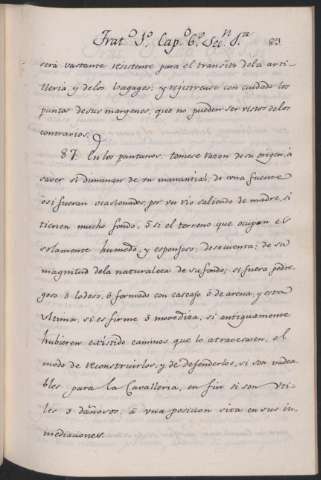 Trat.º 1.º Cap.º 6.º Sec.n 1.ª 83
será vastante resistente para el transito dela arti-
lleria, y delos vagages; y registrese con cuidado los
puntos desus margenes, que no pueden ser vistos delos
contrarios.
87. En los pantanos, tomese razon de su origen, à
saver si dimanan de su manantial, de una fuente
ò si fueran ocasionados, por un rio saliendo de madre, si
tienen mucho fondo, ò si el terreno que ocupan es
solamente humedo, y esponjoso; dese cuenta; de su
magnitud dela naturaleza de su fondo; si fuera pedre-
goso ò lodoso, ò formado con cascajo ò de arena, y esta
ultima, si es firme ò movediza, si antiguamente
hubieron existido caminos que lo atravesasen, el
modo de reconstruirlos, y de defenderlos, si son vadea-
bles para la Cavalleria, en fin si son uti-
les ò dañosos, à una posicion sita en sus in-
mediaciones.